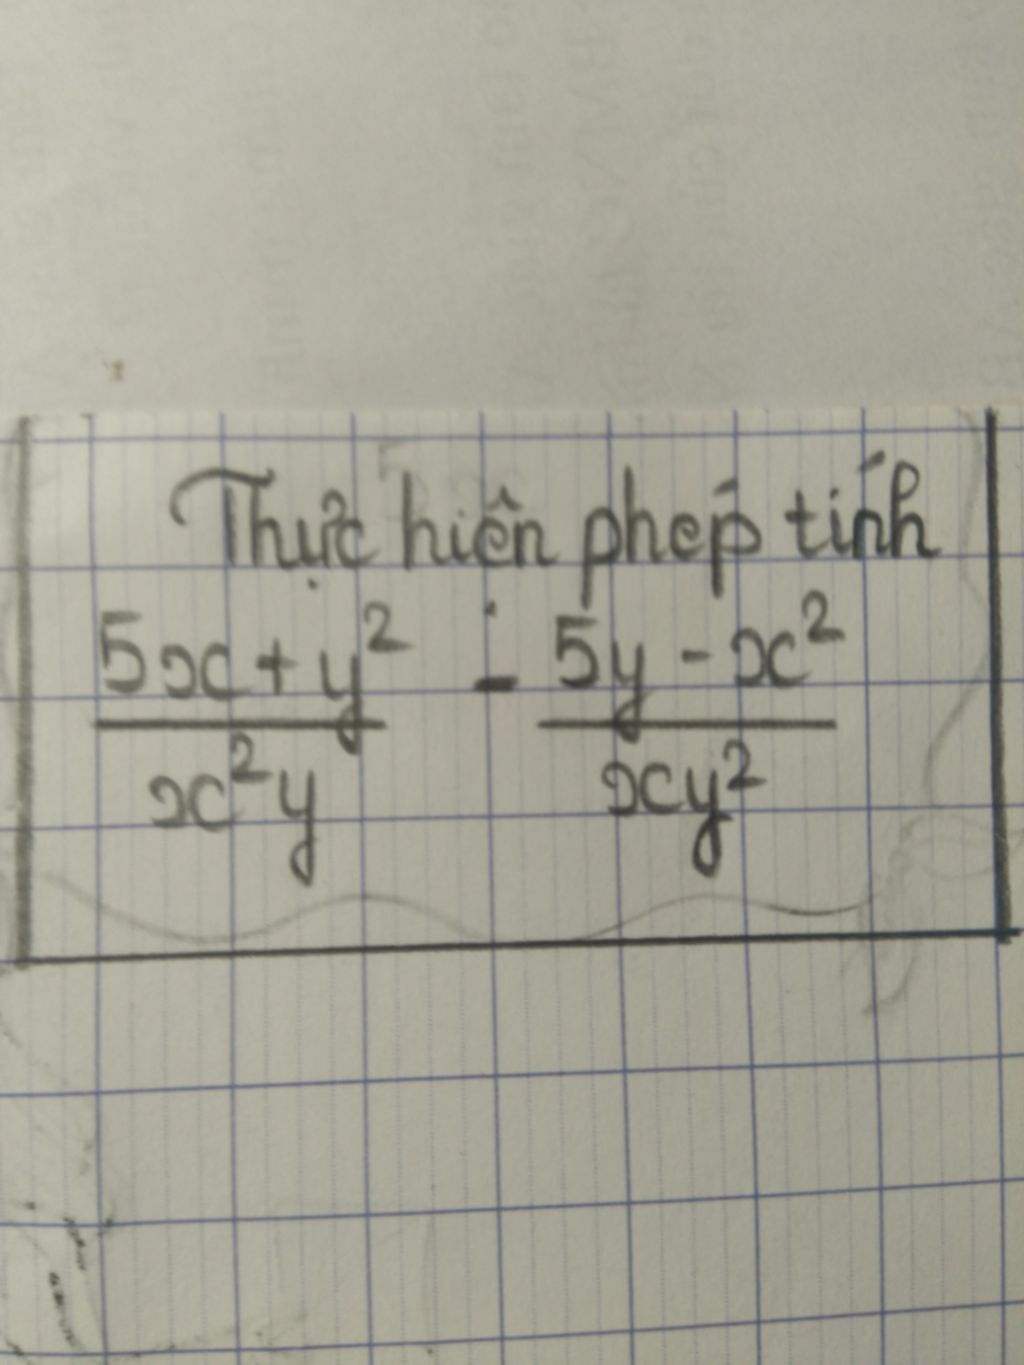 Thực hiện phép tính
5x + y² / x²y - 5y - x² / xy²